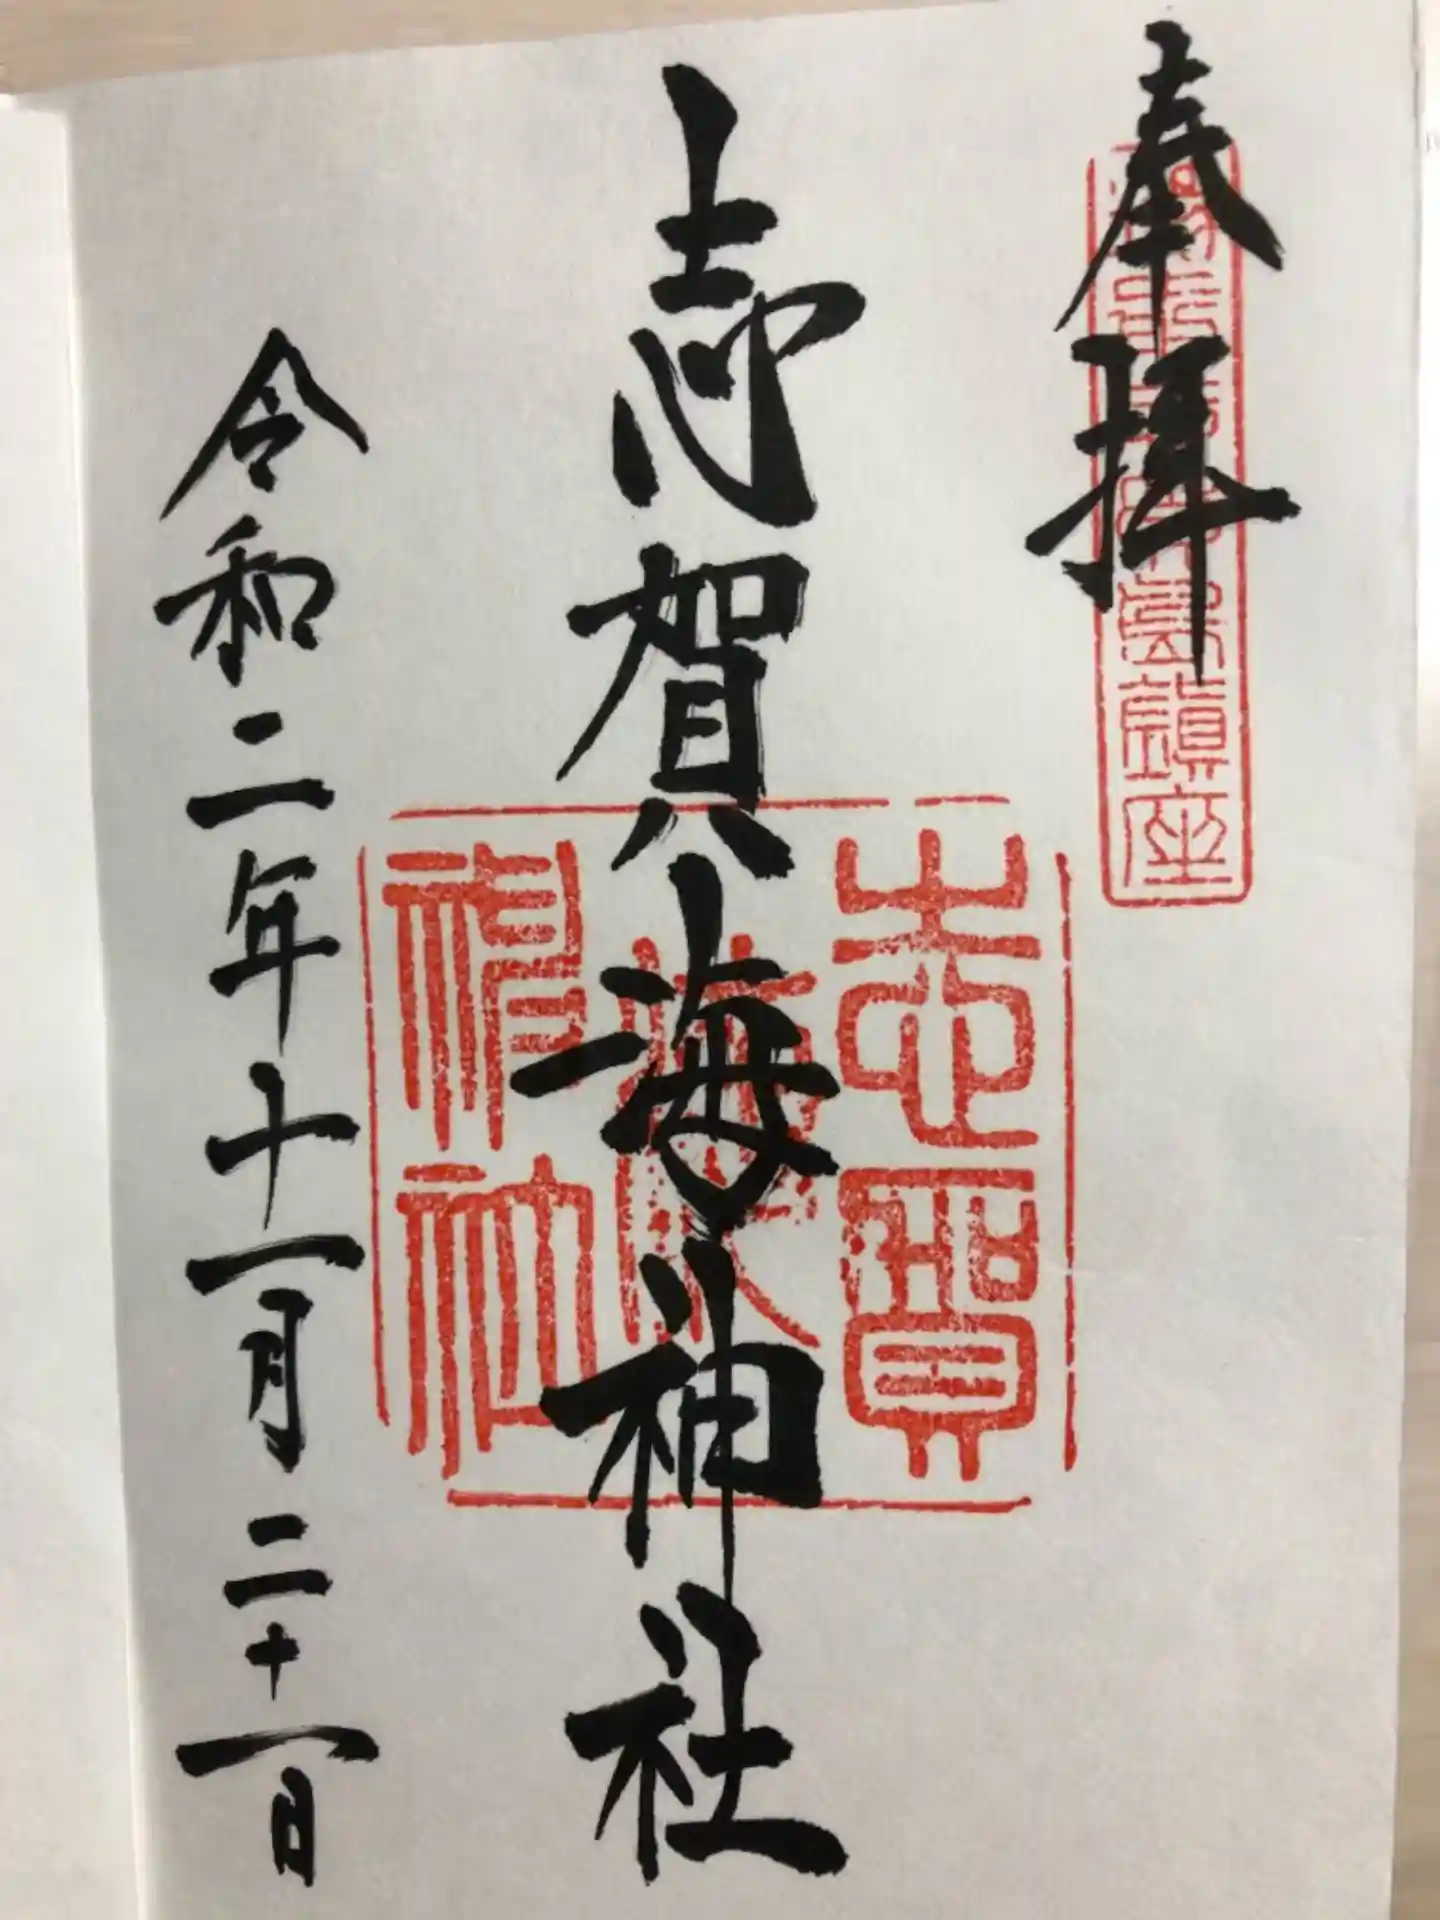 奉拝
志賀海神社
令和二年十一月二十一日
志賀
海
神社
島鎮座